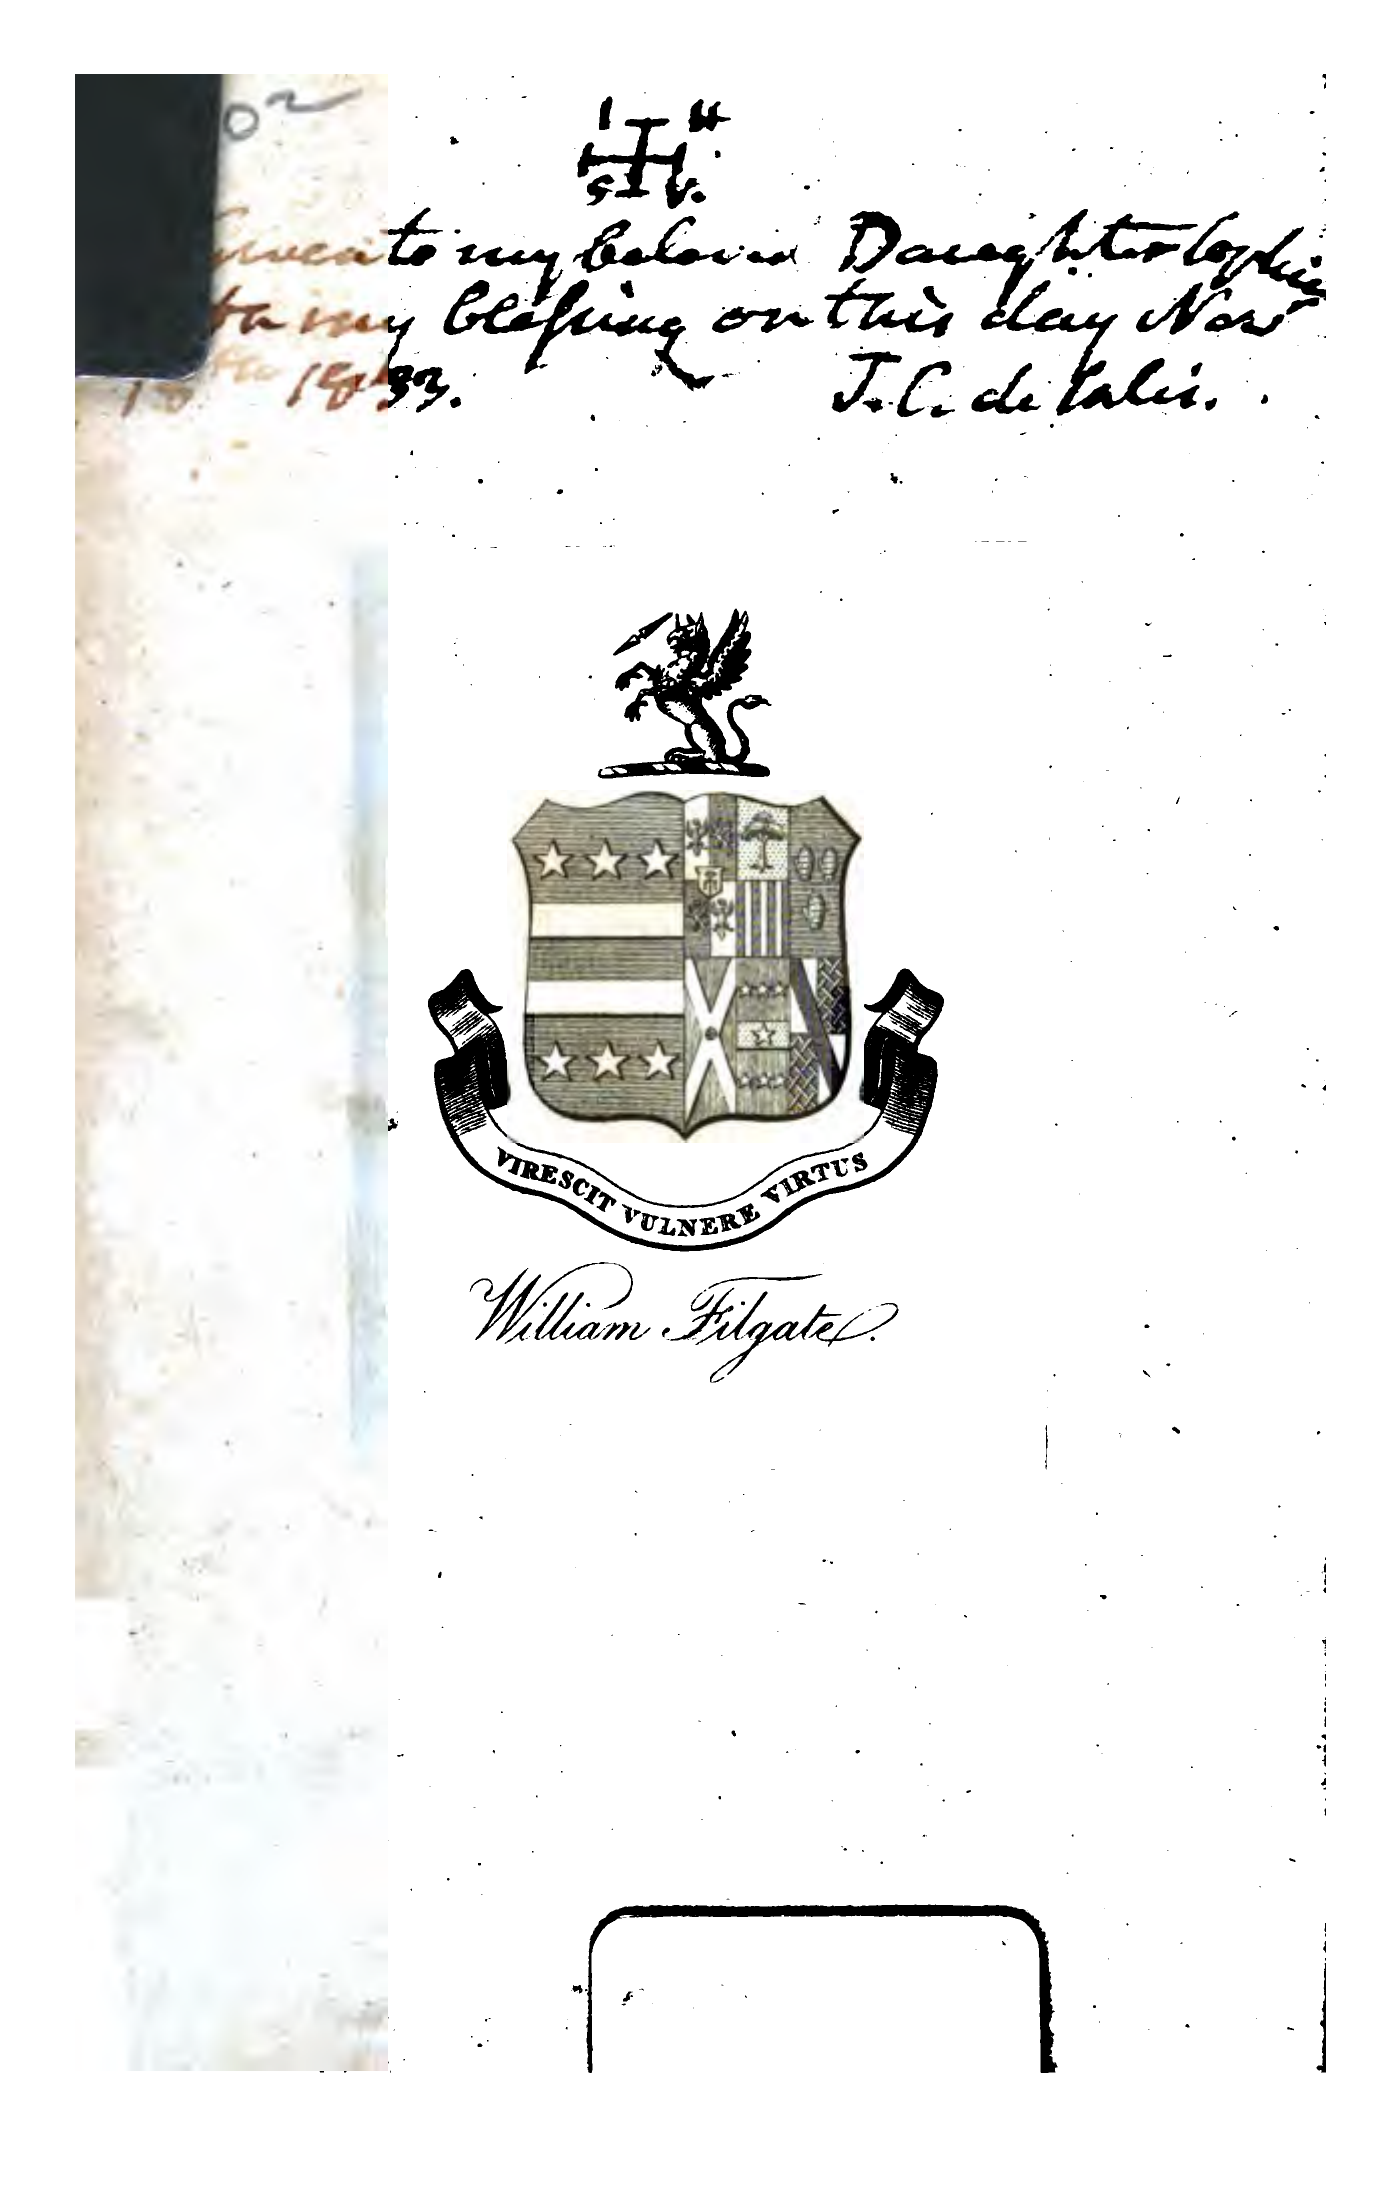 I H
S V.
Given to my beloved Daughter Sophia
my blessing on this day Nov
18th 1833. J. C. de Salis.
VIRESCIT VULNERE VIRTUS
William Filgate.